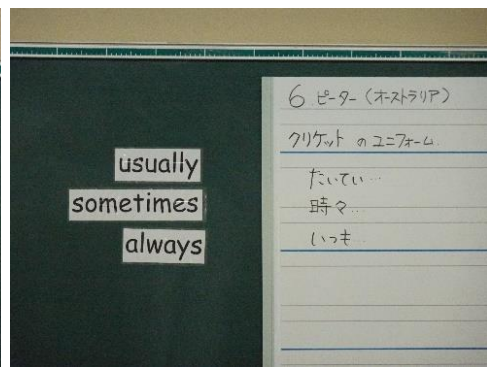 usually
sometimes
always
6 ピーター (オーストラリア)
クリケット の ユニフォーム
たいてい…
時々…
いつも…